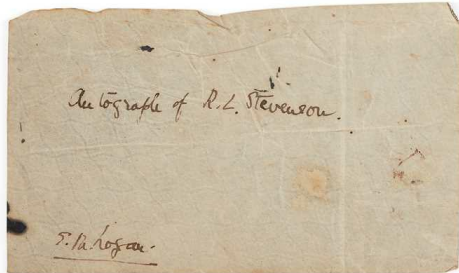 Autograph of R. L. Stevenson.
E. M. Logan.